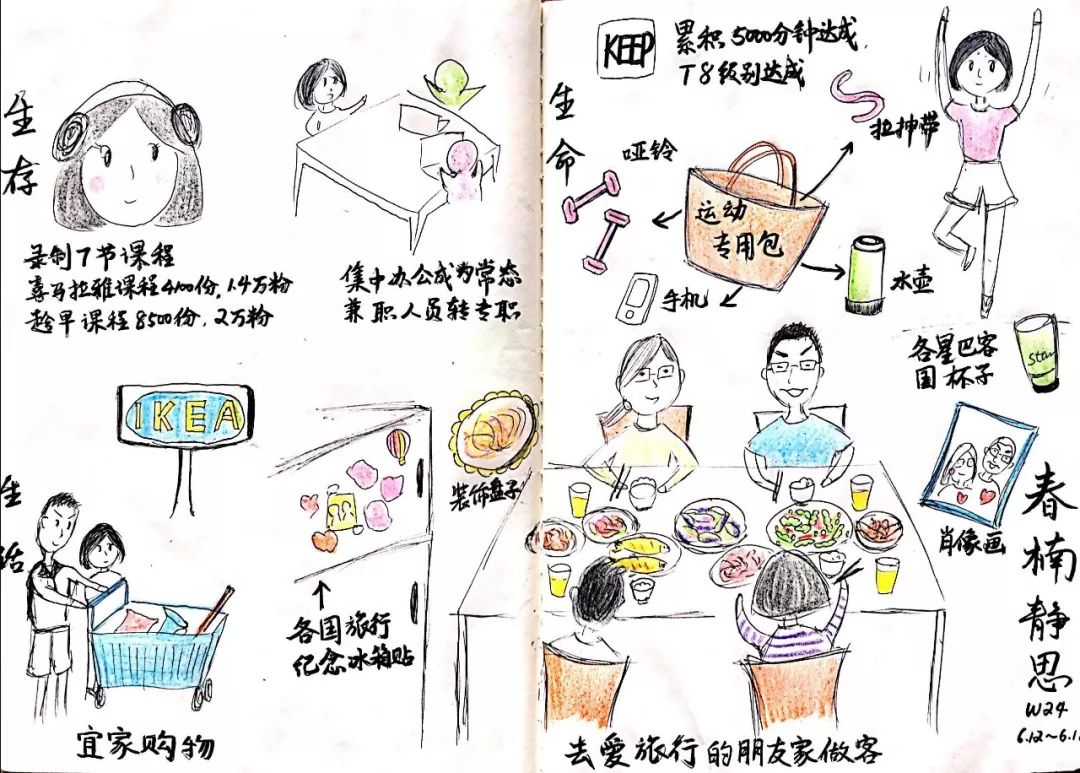 生存
录制7节课程
喜马拉雅课程4100份，1.4万粉
趁早课程8500份，2万粉
集中办公成为常态
兼职人员转专职
生活
IKEA
宜家购物
各国旅行
纪念冰箱贴
装饰盘子
生命
KEEP
累积5000分钟达成，
T8级别达成
哑铃
拉抻带
运动
专用包
手机
水壶
各星巴客
国杯子
star
肖像画
去爱旅行的朋友家做客
春楠静思
W24
6.12~6.1